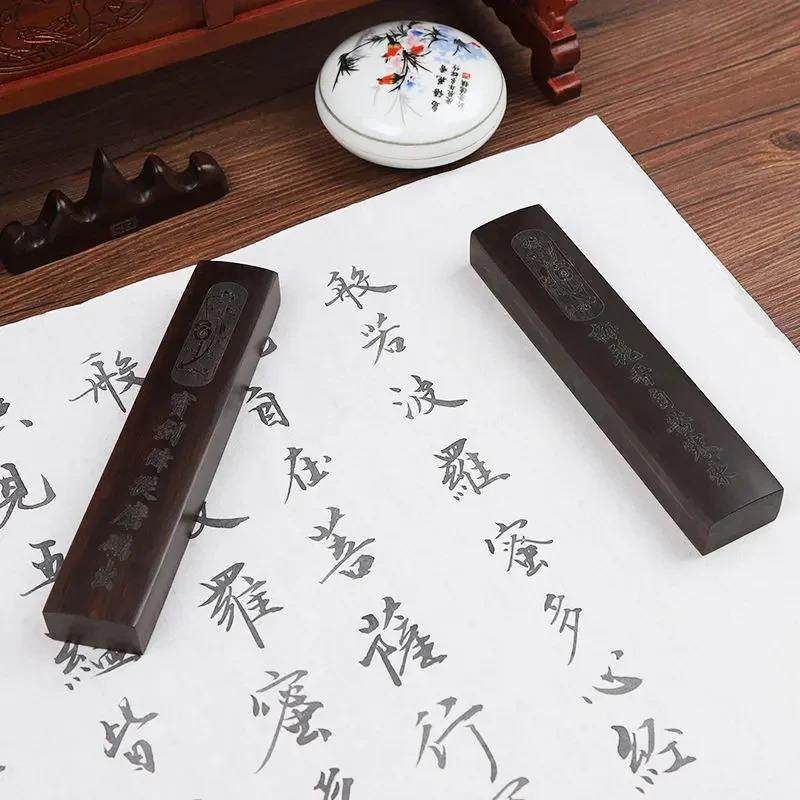 梅花香自苦寒來
般若波羅蜜多心經
自在菩薩行
寶劍鋒從磨礪出
般
羅蜜多
見五蘊皆